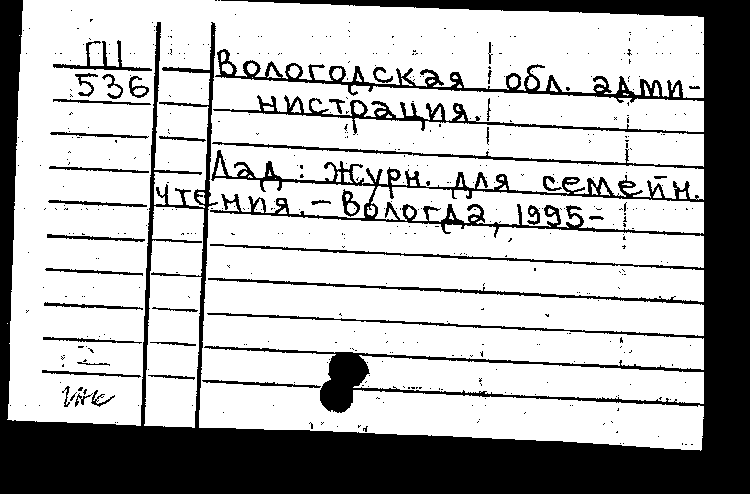 ПІ
536
Вологодская обл. адми-
нистрация.
Лад : журн. для семейн.
чтения. - Вологда, 1995-